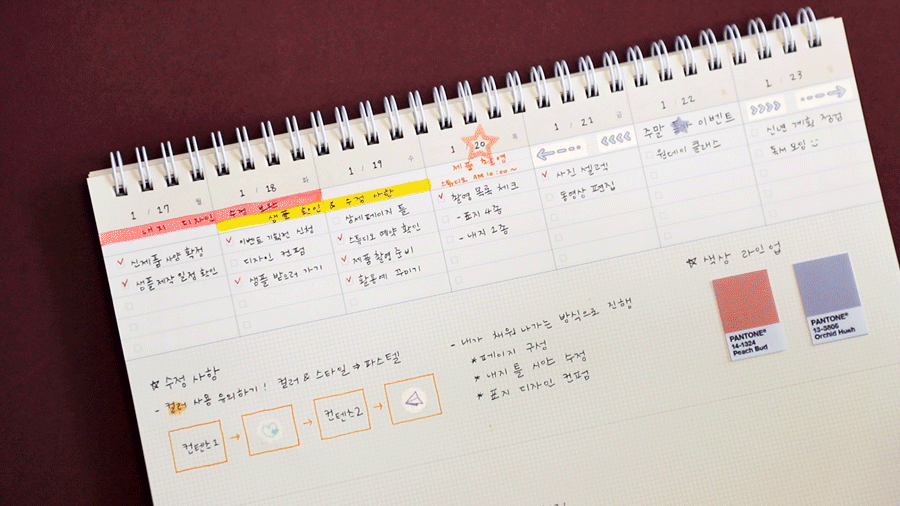 1 / 17 월
1 / 18 화
1 / 19 수
1 / 20 목
1 / 21 금
1 / 22 토
1 / 23
내지 디자인 수정 보완
샘플 확인 & 수정 사항
제품 촬영
스튜디오 AM 10:00~
주말 이벤트
신제품 사양 확정
샘플 제작 일정 확인
이벤트 기획전 신청
디자인 컨펌
샘플 받으러 가기
상세페이지 틀
스튜디오 예약 확인
제품 촬영 준비
활용예 꾸미기
촬영 목록 체크
- 표지 4종
- 내지 2종
사진 셀렉
동영상 편집
원데이 클래스
신년 계획 점검
독서 모임
수정 사항
- 컬러 사용 유의하기! 컬러 & 스타일 → 파스텔
컨텐츠1 → → 컨텐츠2 →
- 내가 채워 나가는 방식으로 진행
* 페이지 구성
* 내지 틀 시안 수정
* 표지 디자인 컨펌
☆ 색상 라인업
PANTONE®
14-1324
Peach Bud
PANTONE®
13-3806
Orchid Hush